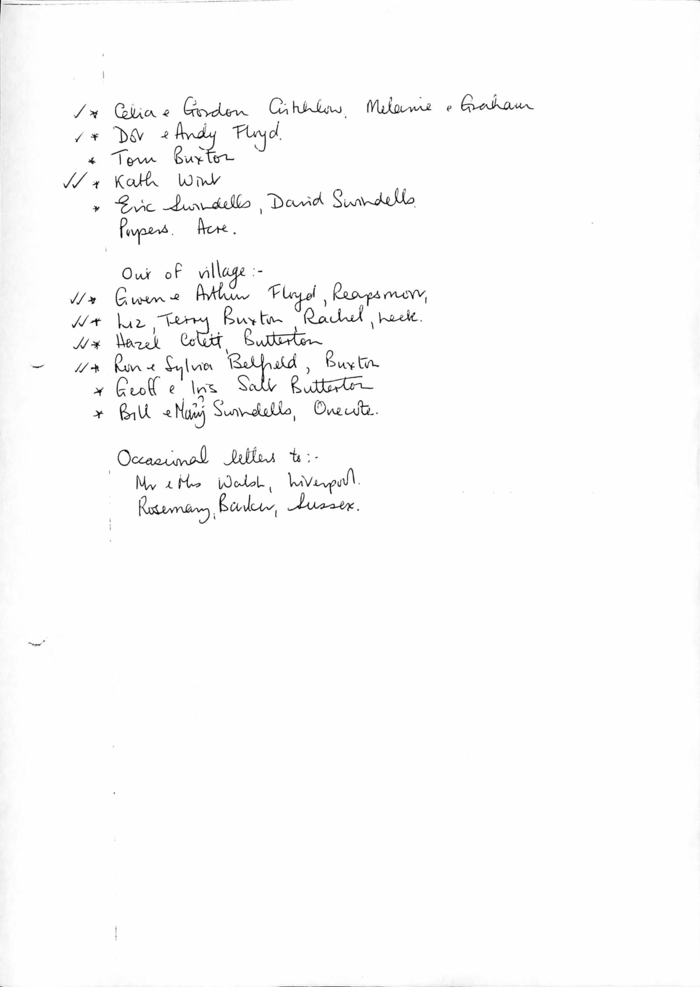 ✓ * Celia & Gordon Critchlow, Melanie & Graham
✓ * Dot & Andy Floyd.
* Tom Buxton
✓✓ * Kath Wint
* Eric Swindells, David Swindells.
Paupers. Acre.
Out of village :-
✓✓ * Gwen & Arthur Floyd, Reapsmoor,
✓✓ * Liz, Terry Buxton, Rachel, Leek.
✓✓ * Hazel Butterton
✓✓ * Ron & Sylvia Belfield, Buxton
* Geoff & Iris Salt Butterton
* Bill & Swindells, Onecote.
Occasional letters to :-
Mr & Mrs Walsh, Liverpool.
Rosemary, Barker, Sussex.